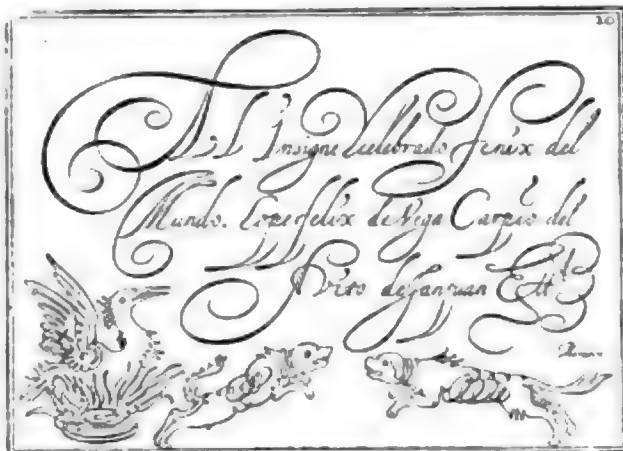 10
Al Insigne Celebrado fenix del
Mundo. Lope felix de Vega Carpio del
Avito de San Juan Ettª